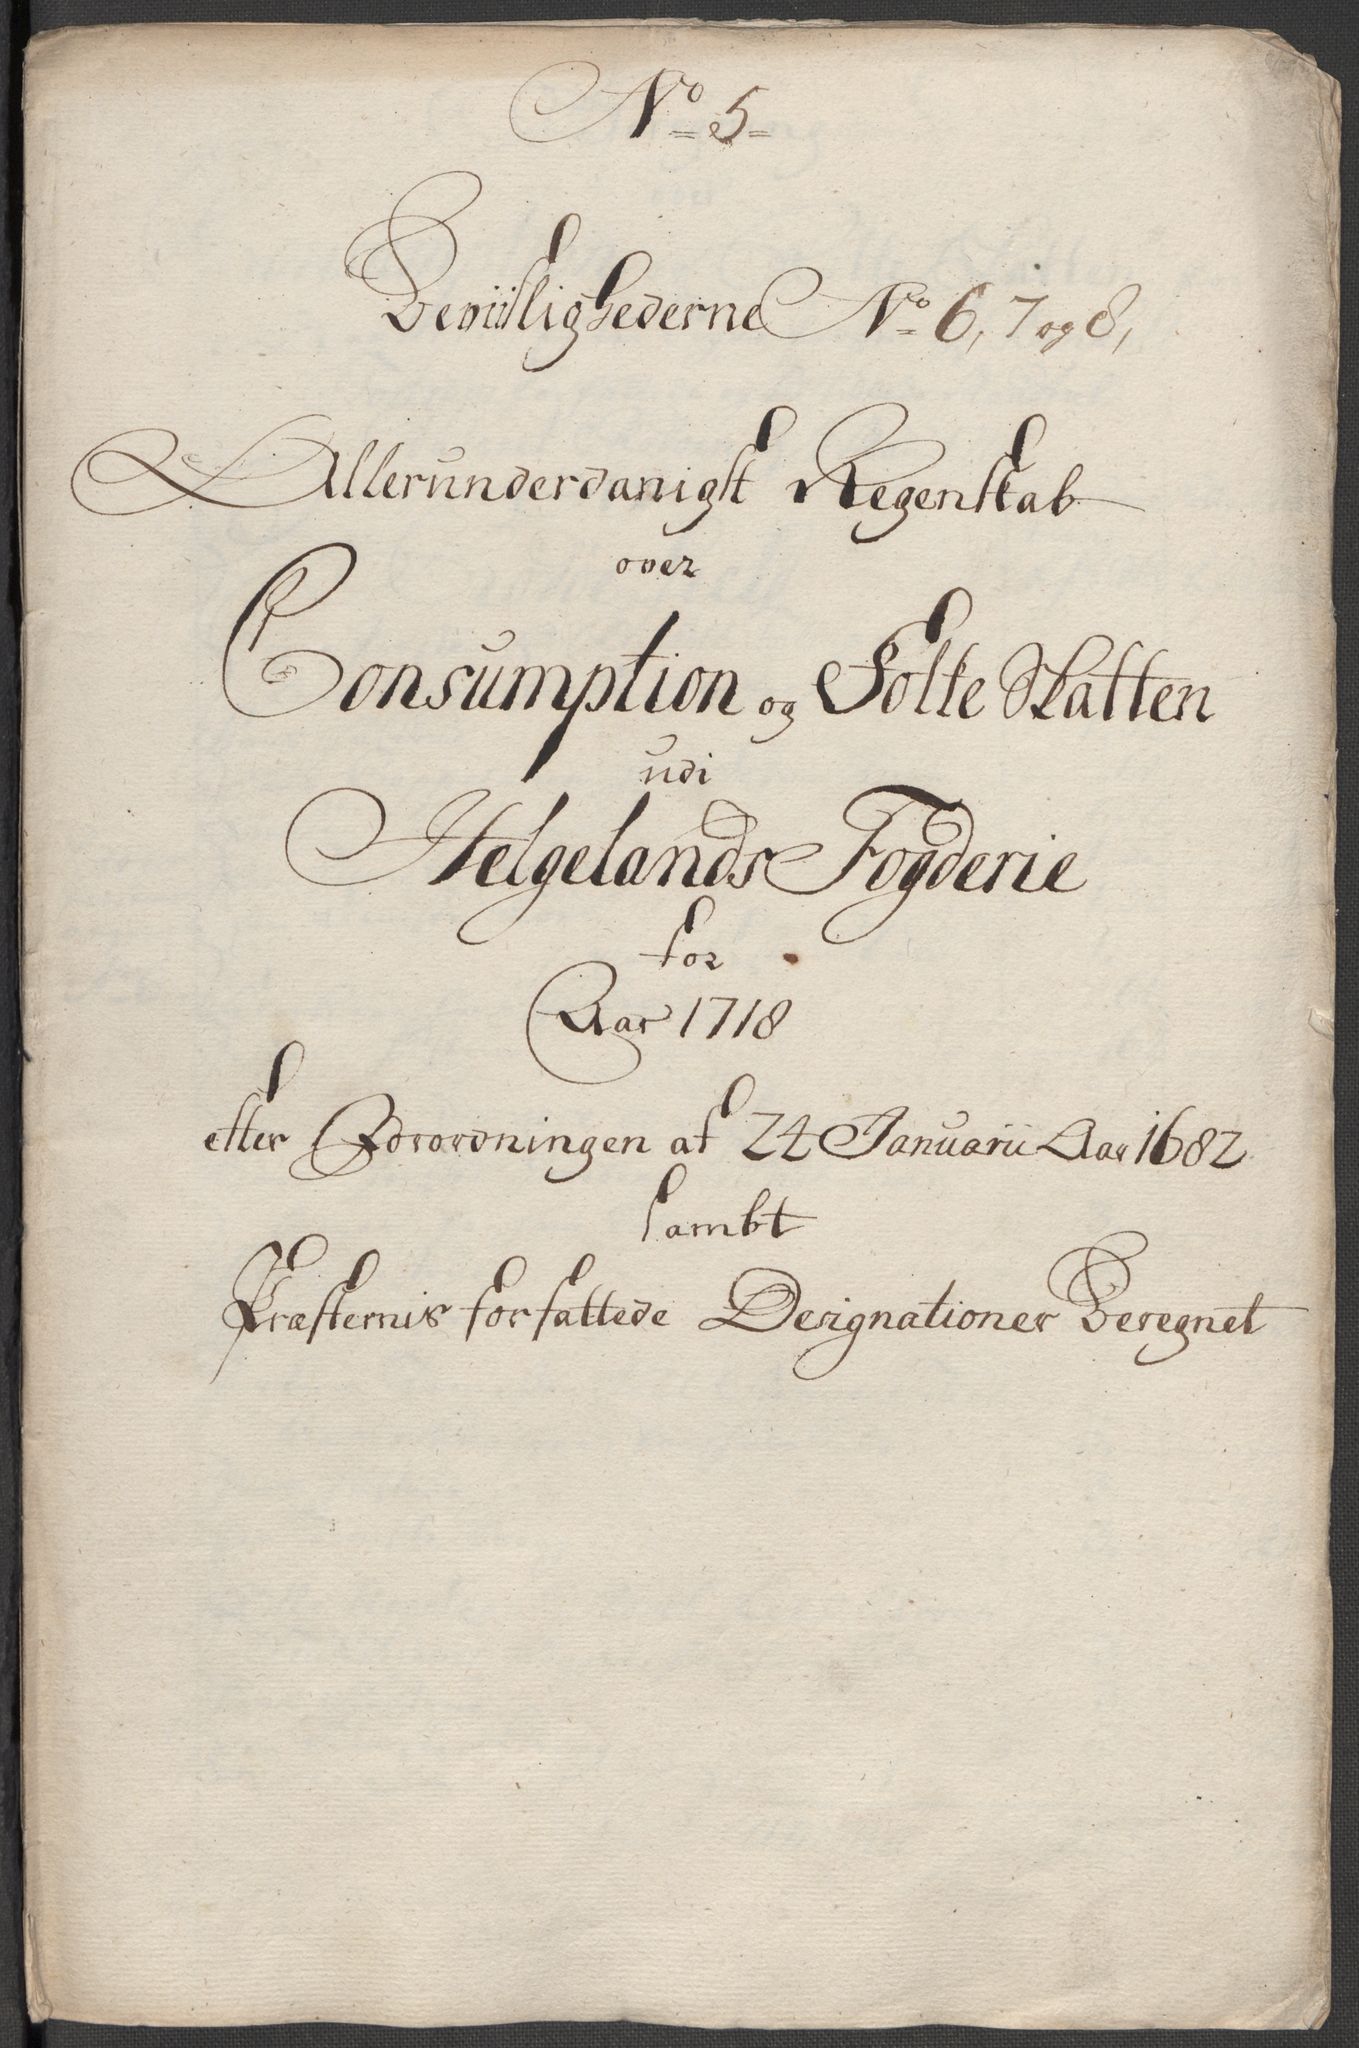 No 5
Beviislighederne No 6, 7 og 8,
Allerunderdanigst Regenskab
over
Consumption og Folke Skatten
udi
Helgelands Fogderie
for
Aar 1718
efter Forordningen af 24 Januarii Aar 1682
sambt
Præsternis forfattede Designationer Beregnet